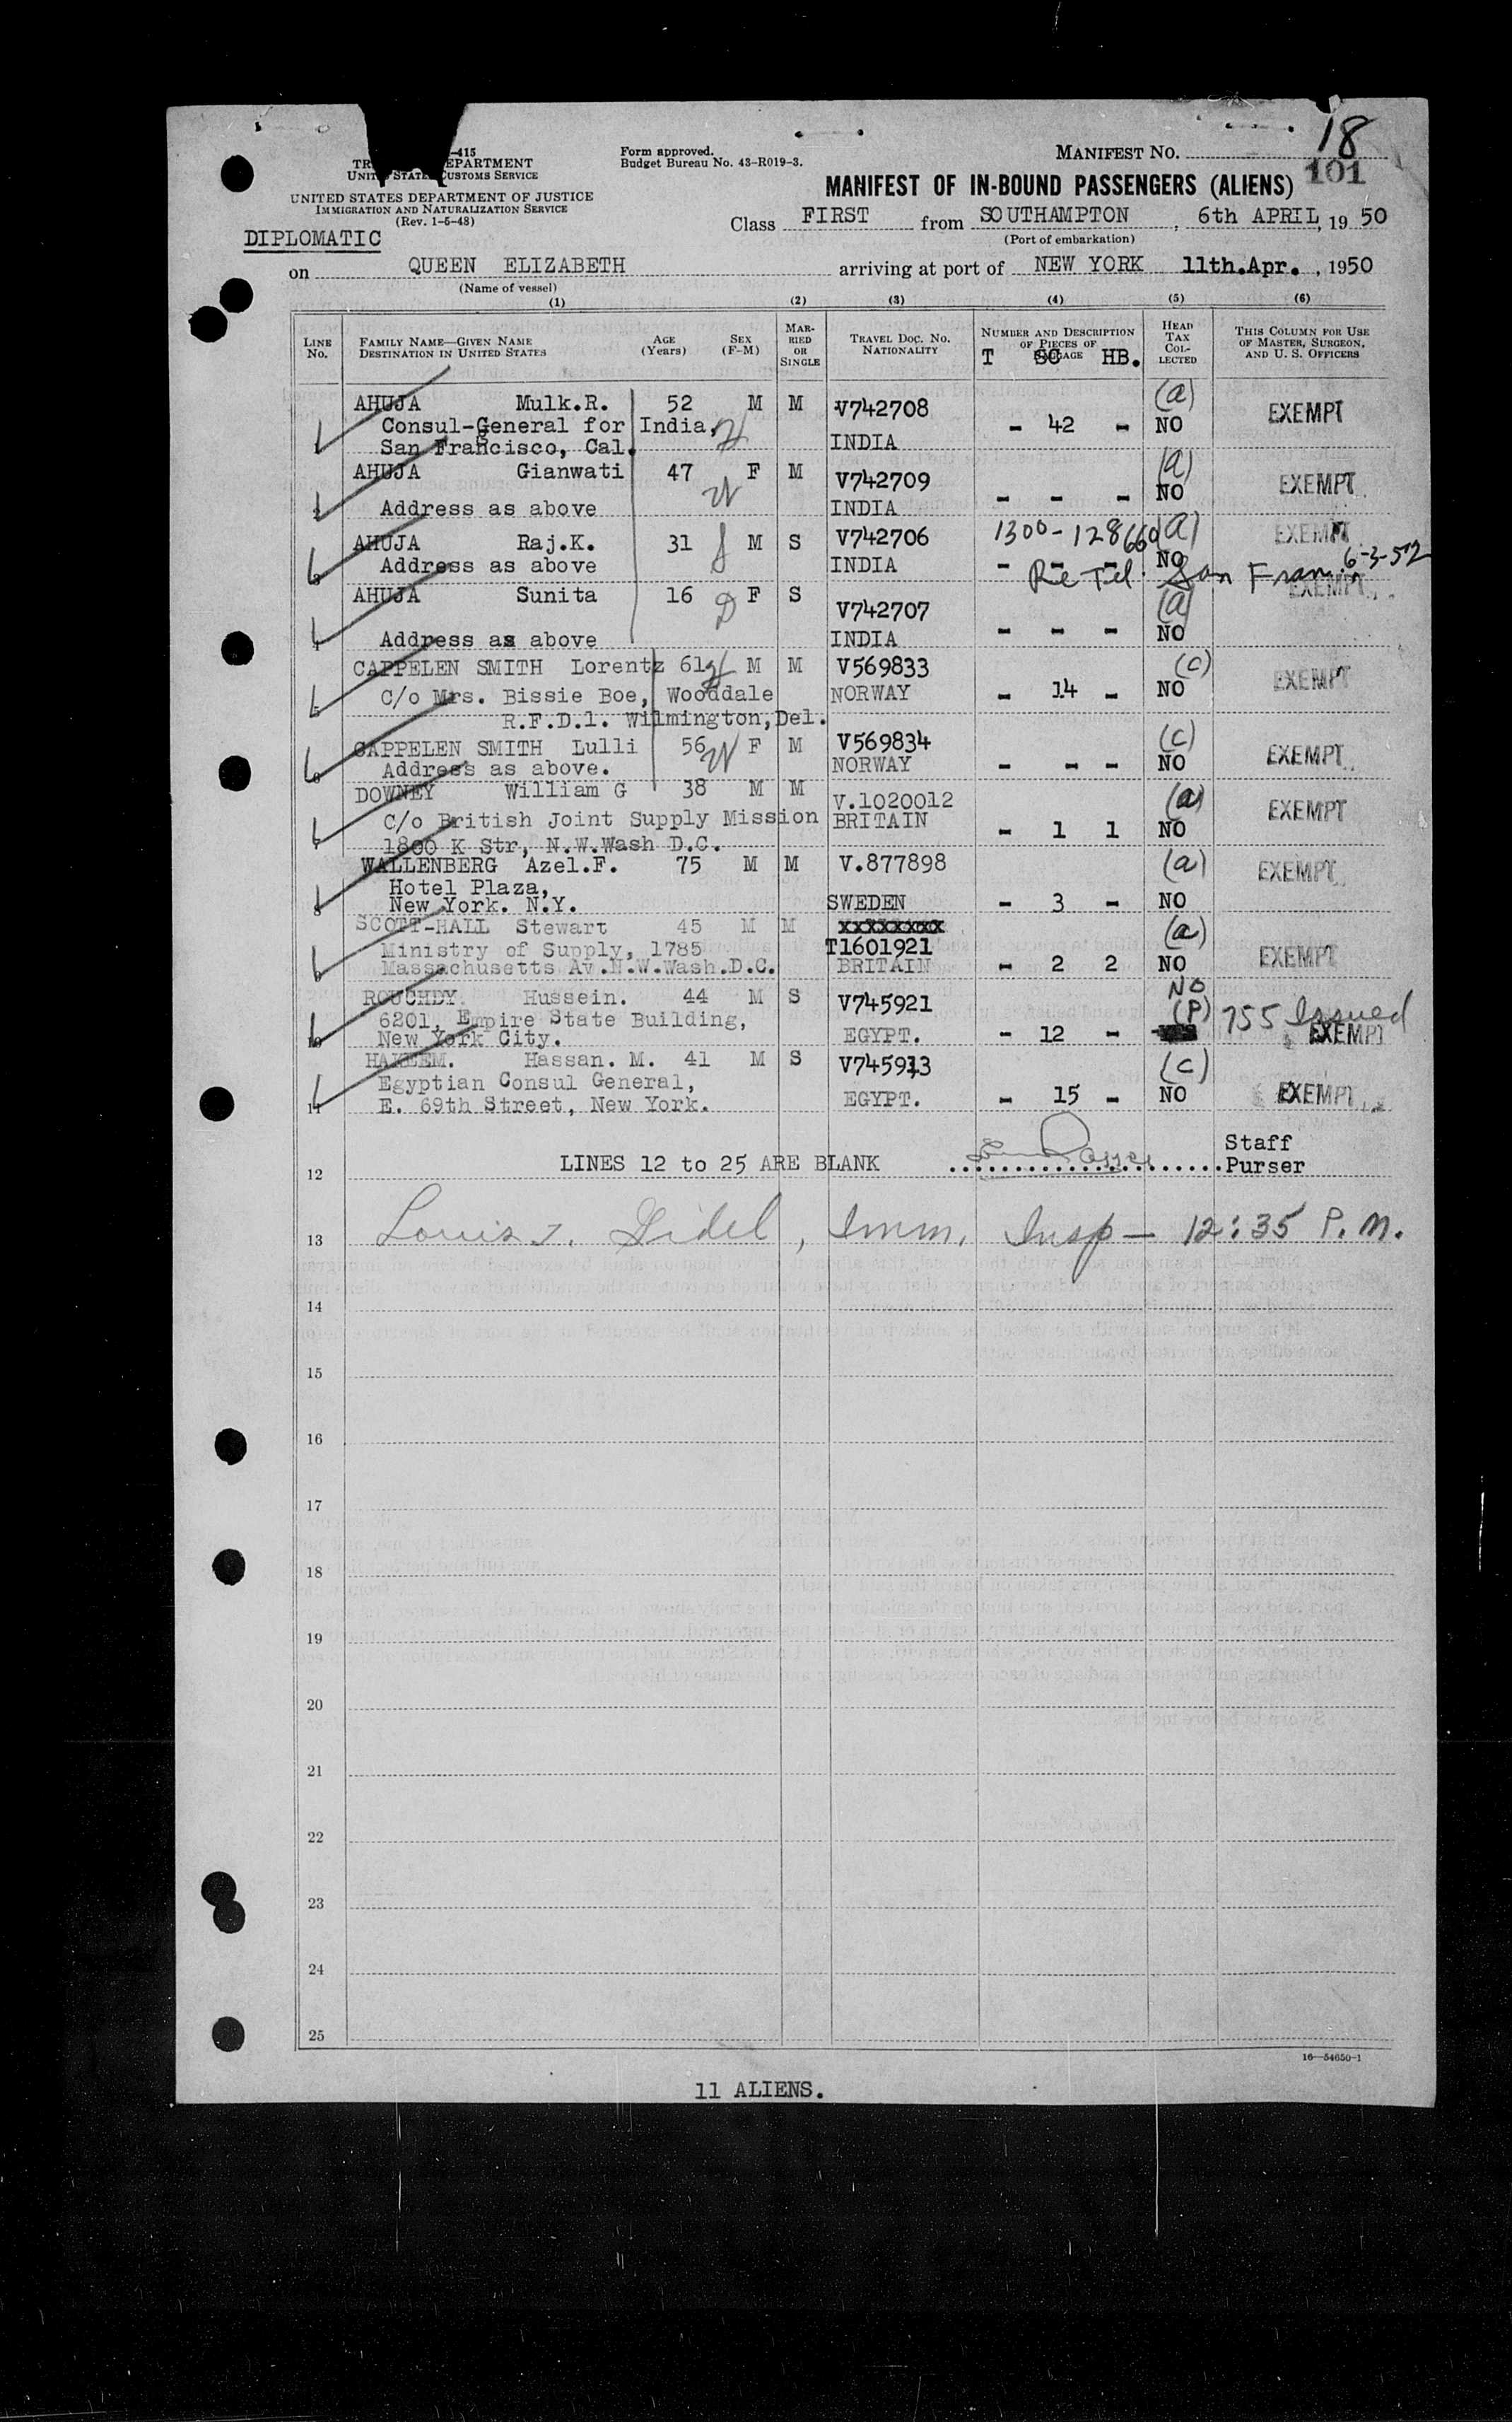 18
-415
Form approved.
MANIFEST NO.
TR EPARTMENT
Budget Bureau No. 43-R019-3.
UNITED STATES CUSTOMS SERVICE
101
UNITED STATES DEPARTMENT OF JUSTICE
MANIFEST OF IN-BOUND PASSENGERS (ALIENS)
IMMIGRATION AND NATURALIZATION SERVICE
(Rev. 1-5-48)
Class FIRST from SOUTHAMPTON , 6th APRIL, 19 50
DIPLOMATIC
(Port of embarkation)
on QUEEN ELIZABETH arriving at port of NEW YORK 11th.Apr. , 1950
(Name of vessel)
(1) (2) (3) (4) (5) (6)
LINE No. FAMILY NAME—GIVEN NAME DESTINATION IN UNITED STATES AGE (Years) SEX (F-M) MARRIED OR SINGLE TRAVEL DOC. NO. NATIONALITY NUMBER AND DESCRIPTION OF PIECES OF BAGGAGE HEAD TAX COLLECTED THIS COLUMN FOR USE OF MASTER, SURGEON, AND U. S. OFFICERS
T SC HB.
AHUJA Mulk.R. 52 M M V742708 (a) EXEMPT
Consul-General for India, - 42 - NO
San Francisco, Cal. INDIA
AHUJA Gianwati 47 F M V742709 (a) EXEMPT
2 Address as above INDIA - - - NO
AHUJA Raj.K. 31 M S V742706 1300-128660 (a) EXEMPT
3 Address as above INDIA - - - NO
Re Tel. San Fran. 6-3-52
AHUJA Sunita 16 F S V742707 (a) EXEMPT
4 Address as above INDIA - - - NO
CAPPELEN SMITH Lorentz 61 M M V569833 (c) EXEMPT
5 C/o Mrs. Bissie Boe, Wooddale NORWAY - 14 - NO
R.F.D.1. Wilmington,Del.
CAPPELEN SMITH Lulli 56 F M V569834 (c) EXEMPT
6 Address as above. NORWAY - - - NO
DOWNEY William G 38 M M V.1020012 (a) EXEMPT
C/o British Joint Supply Mission BRITAIN - 1 1 NO
7 1800 K Str, N.W.Wash D.C.
WALLENBERG Azel.F. 75 M M V.877898 (a) EXEMPT
Hotel Plaza,
8 New York. N.Y. SWEDEN - 3 - NO
SCOTT-HALL Stewart 45 M M xxxxxxxx (a)
Ministry of Supply, 1785 T1601921 EXEMPT
9 Massachusetts Av.N.W.Wash.D.C. BRITAIN - 2 2 NO
NO
ROUCHDY. Hussein. 44 M S V745921 (P) 755 Issued
6201, Empire State Building,
10 New York City. EGYPT. - 12 - EXEMPT
HAKEEM. Hassan. M. 41 M S V745913 (c)
Egyptian Consul General,
11 E. 69th Street, New York. EGYPT. - 15 - NO EXEMPT
Staff
12 LINES 12 to 25 ARE BLANK Purser
13 Louis , Imm. Insp — 12:35 P.M.
14
15
16
17
18
19
20
21
22
23
24
25
16—54650-1
11 ALIENS.